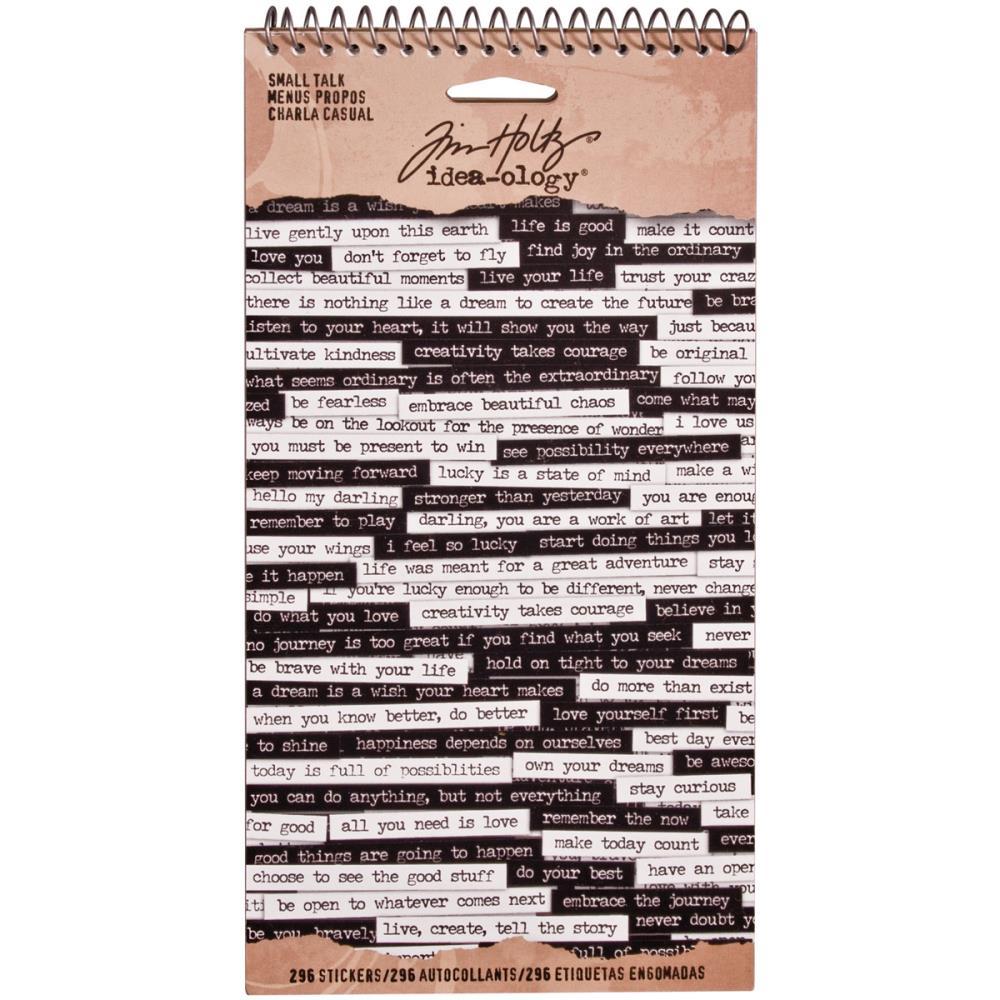 SMALL TALK
MENUS PROPOS
CHARLA CASUAL
Tim Holtz®
idea-ology®
a dream is a wish heart makes
live gently upon this earth life is good make it count
love you don't forget to fly find joy in the ordinary
collect beautiful moments live your life trust your craz
there is nothing like a dream to create the future be bra
isten to your heart, it will show you the way just becau
ultivate kindness creativity takes courage be original
what seems ordinary is often the extraordinary follow you
zed be fearless embrace beautiful chaos come what may
ways be on the lookout for the presence of wonder i love us
you must be present to win see possibility everywhere
keep moving forward lucky is a state of mind make a wi
hello my darling stronger than yesterday you are enoug
remember to play darling, you are a work of art let it
use your wings i feel so lucky start doing things you lo
e it happen life was meant for a great adventure stay
simple if you're lucky enough to be different, never change
do what you love creativity takes courage believe in y
no journey is too great if you find what you seek never
be brave with your life hold on tight to your dreams
a dream is a wish your heart makes do more than exist
when you know better, do better love yourself first be
to shine happiness depends on ourselves best day ever
today is full of possiblities own your dreams be aweso
you can do anything, but not everything stay curious
for good all you need is love remember the now take
good things are going to happen make today count ever
choose to see the good stuff do your best have an open
iti be open to whatever comes next embrace the journey
be you, bravely live, create, tell the story never doubt y
full of possib
296 STICKERS/296 AUTOCOLLANTS/296 ETIQUETAS ENGOMADAS